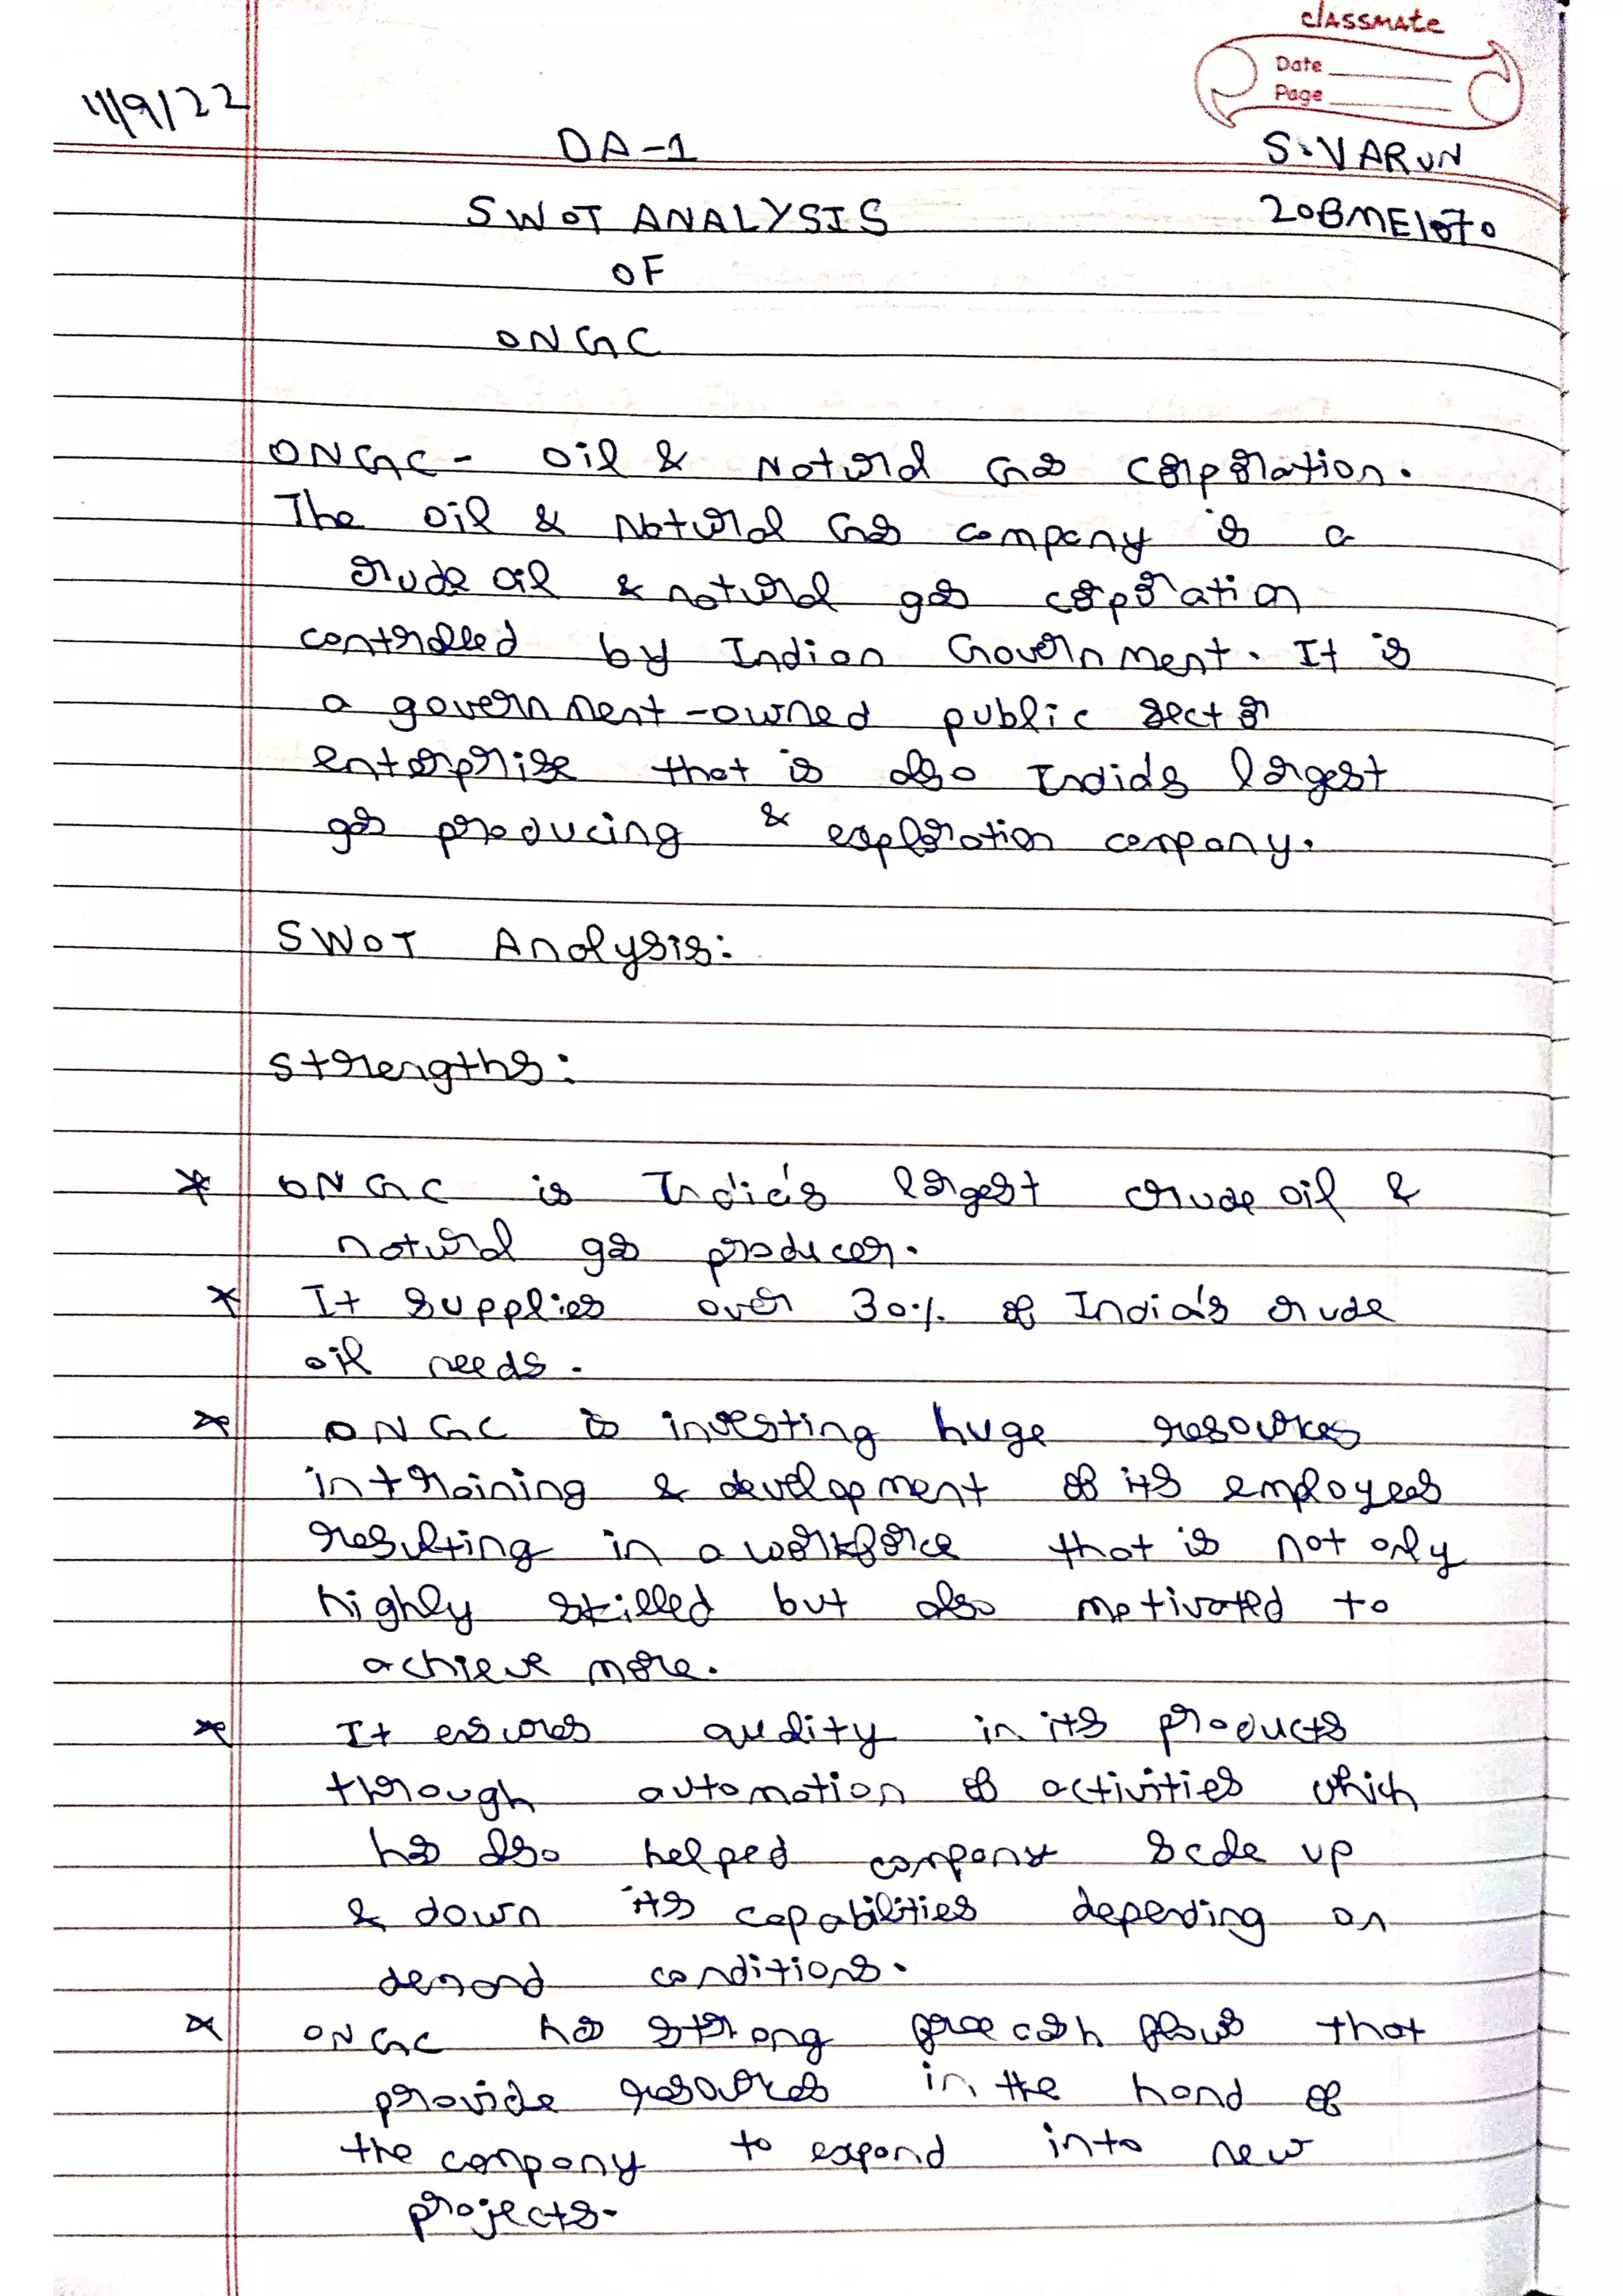 classmate
Date
Page
11/9/22
DA-1
S.VARUN
SWOT ANALYSIS
20BME1070
OF
ONGC
ONGC - Oil & Natural Gas Corporation.
The Oil & Natural Gas company is a
crude oil & natural gas corporation
controlled by Indian Government. It is
a government-owned public sector
enterprise that is also India's largest
gas producing & exploration company.
SWOT Analysis:
Strengths:
* ONGC is India's largest crude oil &
natural gas producer.
* It supplies over 30% of India's crude
oil needs.
* ONGC is investing huge resources
in training & development of its employees
resulting in a workforce that is not only
highly skilled but also motivated to
achieve more.
* It ensures quality in its products
through automation of activities which
has also helped company scale up
& down its capabilities depending on
demand conditions.
* ONGC has strong free cash flows that
provide resources in the hand of
the company to expand into new
projects.